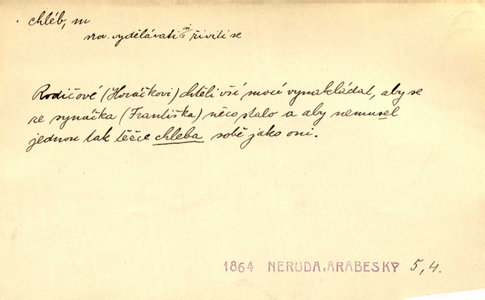 chléb, m
srov. vydělávati si živiti se
Rodičové (Horáčkovi) chtěli vší mocí vynakládat, aby se
ze synáčka (Františka) něco stalo a aby nemusel
jednou tak těžce chleba sobě jako oni.
1864 NERUDA, ARABESKY 5,4.